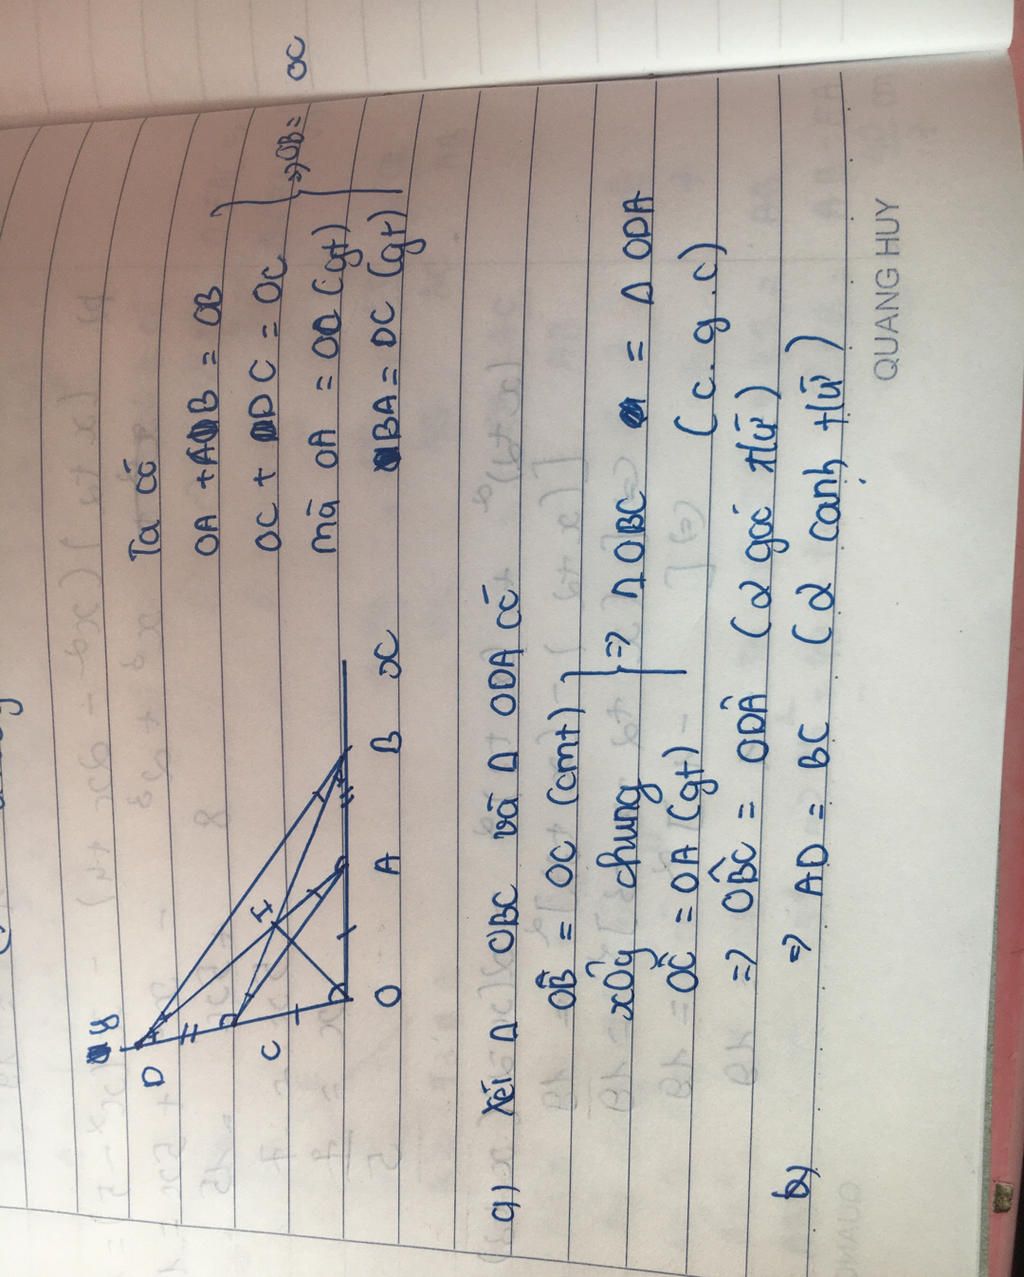 y
D
C
I
O A B x
Ta có
OA + AB = OB
OC + DC = OC
} => OB = OC
mà OA = OD (gt)
BA = DC (gt)
a) Xét Δ OBC và Δ ODA có
OB = OC (cmt)
xOy chung } => Δ OBC = Δ ODA
OC = OA (gt) (c.g.c)
=> OBC = ODA (2 góc t/ứ)
=> AD = BC (2 cạnh t/ứ)
b)
QUANG HUY